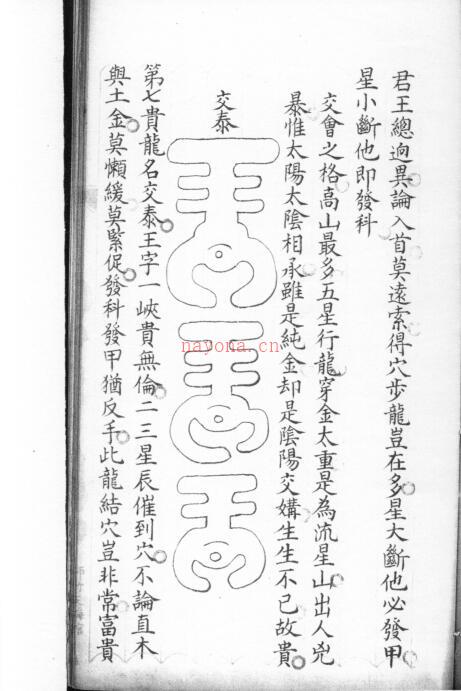 君王總逈異論入首莫遠索得穴步龍豈在多星大斷他必發甲
星小斷他即發科
交會之格高山最多五星行龍穿金太重是為流星山出人兇
暴惟太陽太陰相承雖是純金却是陰陽交媾生生不已故貴
交泰
第七貴龍名交泰王字一峽貴無倫二三星辰催到穴不論直木
與土金莫懶緩莫緊促發科發甲猶反手此龍結穴豈非常富貴
nayona.cn